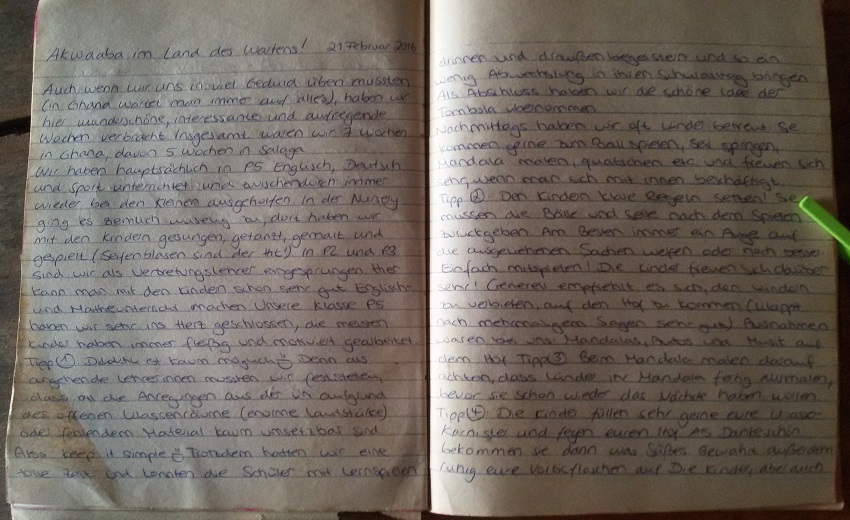 Akwaaba im Land des Wartens! 21 Februar 2016
Auch wenn wir uns in viel Geduld üben mussten
(in Ghana wartet man immer auf alles), haben wir
hier wunderschöne, interessante und aufregende
Wochen verbracht Insgesamt waren wir 7 Wochen
in Ghana, davon 5 Wochen in Salaga
Wir haben hauptsächlich in P5 Englisch, Deutsch
und Sport unterrichtet und zwischendurch immer
wieder bei den Kleinen ausgeholfen. In der Nursery
ging es ziemlich wuselig zu, dort haben wir
mit den Kindern gesungen, getanzt, gemalt und
gespielt (Seifenblasen sind der Hit!) in P2 und P3
sind wir als Vertretungslehrer eingesprungen Hier
kann man mit den Kindern schon sehr gut Englisch-
und Matheunterricht machen Unsere Klasse P5
haben wir sehr ins Herz geschlossen, die meisten
Kinder haben immer fleißig und motiviert gearbeitet
Tipp ①: Didaktik ist kaum möglich Denn als
angehende Lehrerinnen mussten wir feststellen,
dass all die Anregungen aus der Uni aufgrund
des offenen Klassenräume (enorme Lautstärke)
oder fehlendem Material kaum umsetzbar sind
Also keep it simple Trotzdem hatten wir eine
tolle Zeit und konnten die Schüler mit Lernspielen
drinnen und draußen begeistern und so ein
wenig Abwechslung in ihren Schulalltag bringen
Als Abschluss haben wir die schöne Idee der
Tombola übernommen
Nachmittags haben wir oft Kinder betreut Sie
kommen gerne zum Ball spielen, Seil springen,
Mandala malen, quatschen etc und freuen sich
sehr, wenn man sich mit ihnen beschäftigt
Tipp ②: Den Kindern klare Regeln setzen! Sie
müssen die Bälle und Seile nach dem Spielen
zurückgeben Am Besten immer ein Auge auf
die ausgeliehenen Sachen werfen oder noch besser
Einfach mitspielen! Die Kinder freuen sich darüber
sehr! Generell empfiehlt es sich, den Kindern
zu verbieten, auf den Hof zu kommen (klappt
nach mehrmaligem Sagen sehr gut) Ausnahmen
waren bei uns Mandalas, Autos und Musik auf
dem Hof Tipp ③ Beim Mandala malen darauf
achten, dass Kinder ihr Mandala fertig ausmalen,
bevor sie schon wieder das Nächste haben wollen
Tipp ④: Die Kinder füllen sehr gerne eure Wasser-
kanister und fegen euren Hof Als Dankeschön
bekommen sie dann was Süßes Bewahrt außerdem
ruhig eure Voltic flaschen auf Die Kinder, aber auch